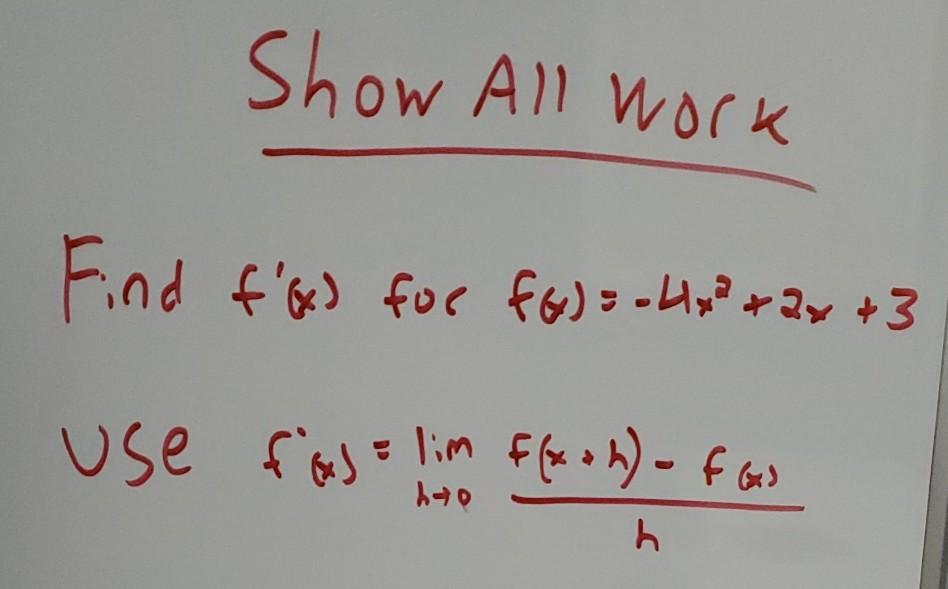 Show All Work
Find f'(x) for f(x) = -4x² + 2x + 3
Use f'(x) = lim f(x+h) - f(x)
h→0
h